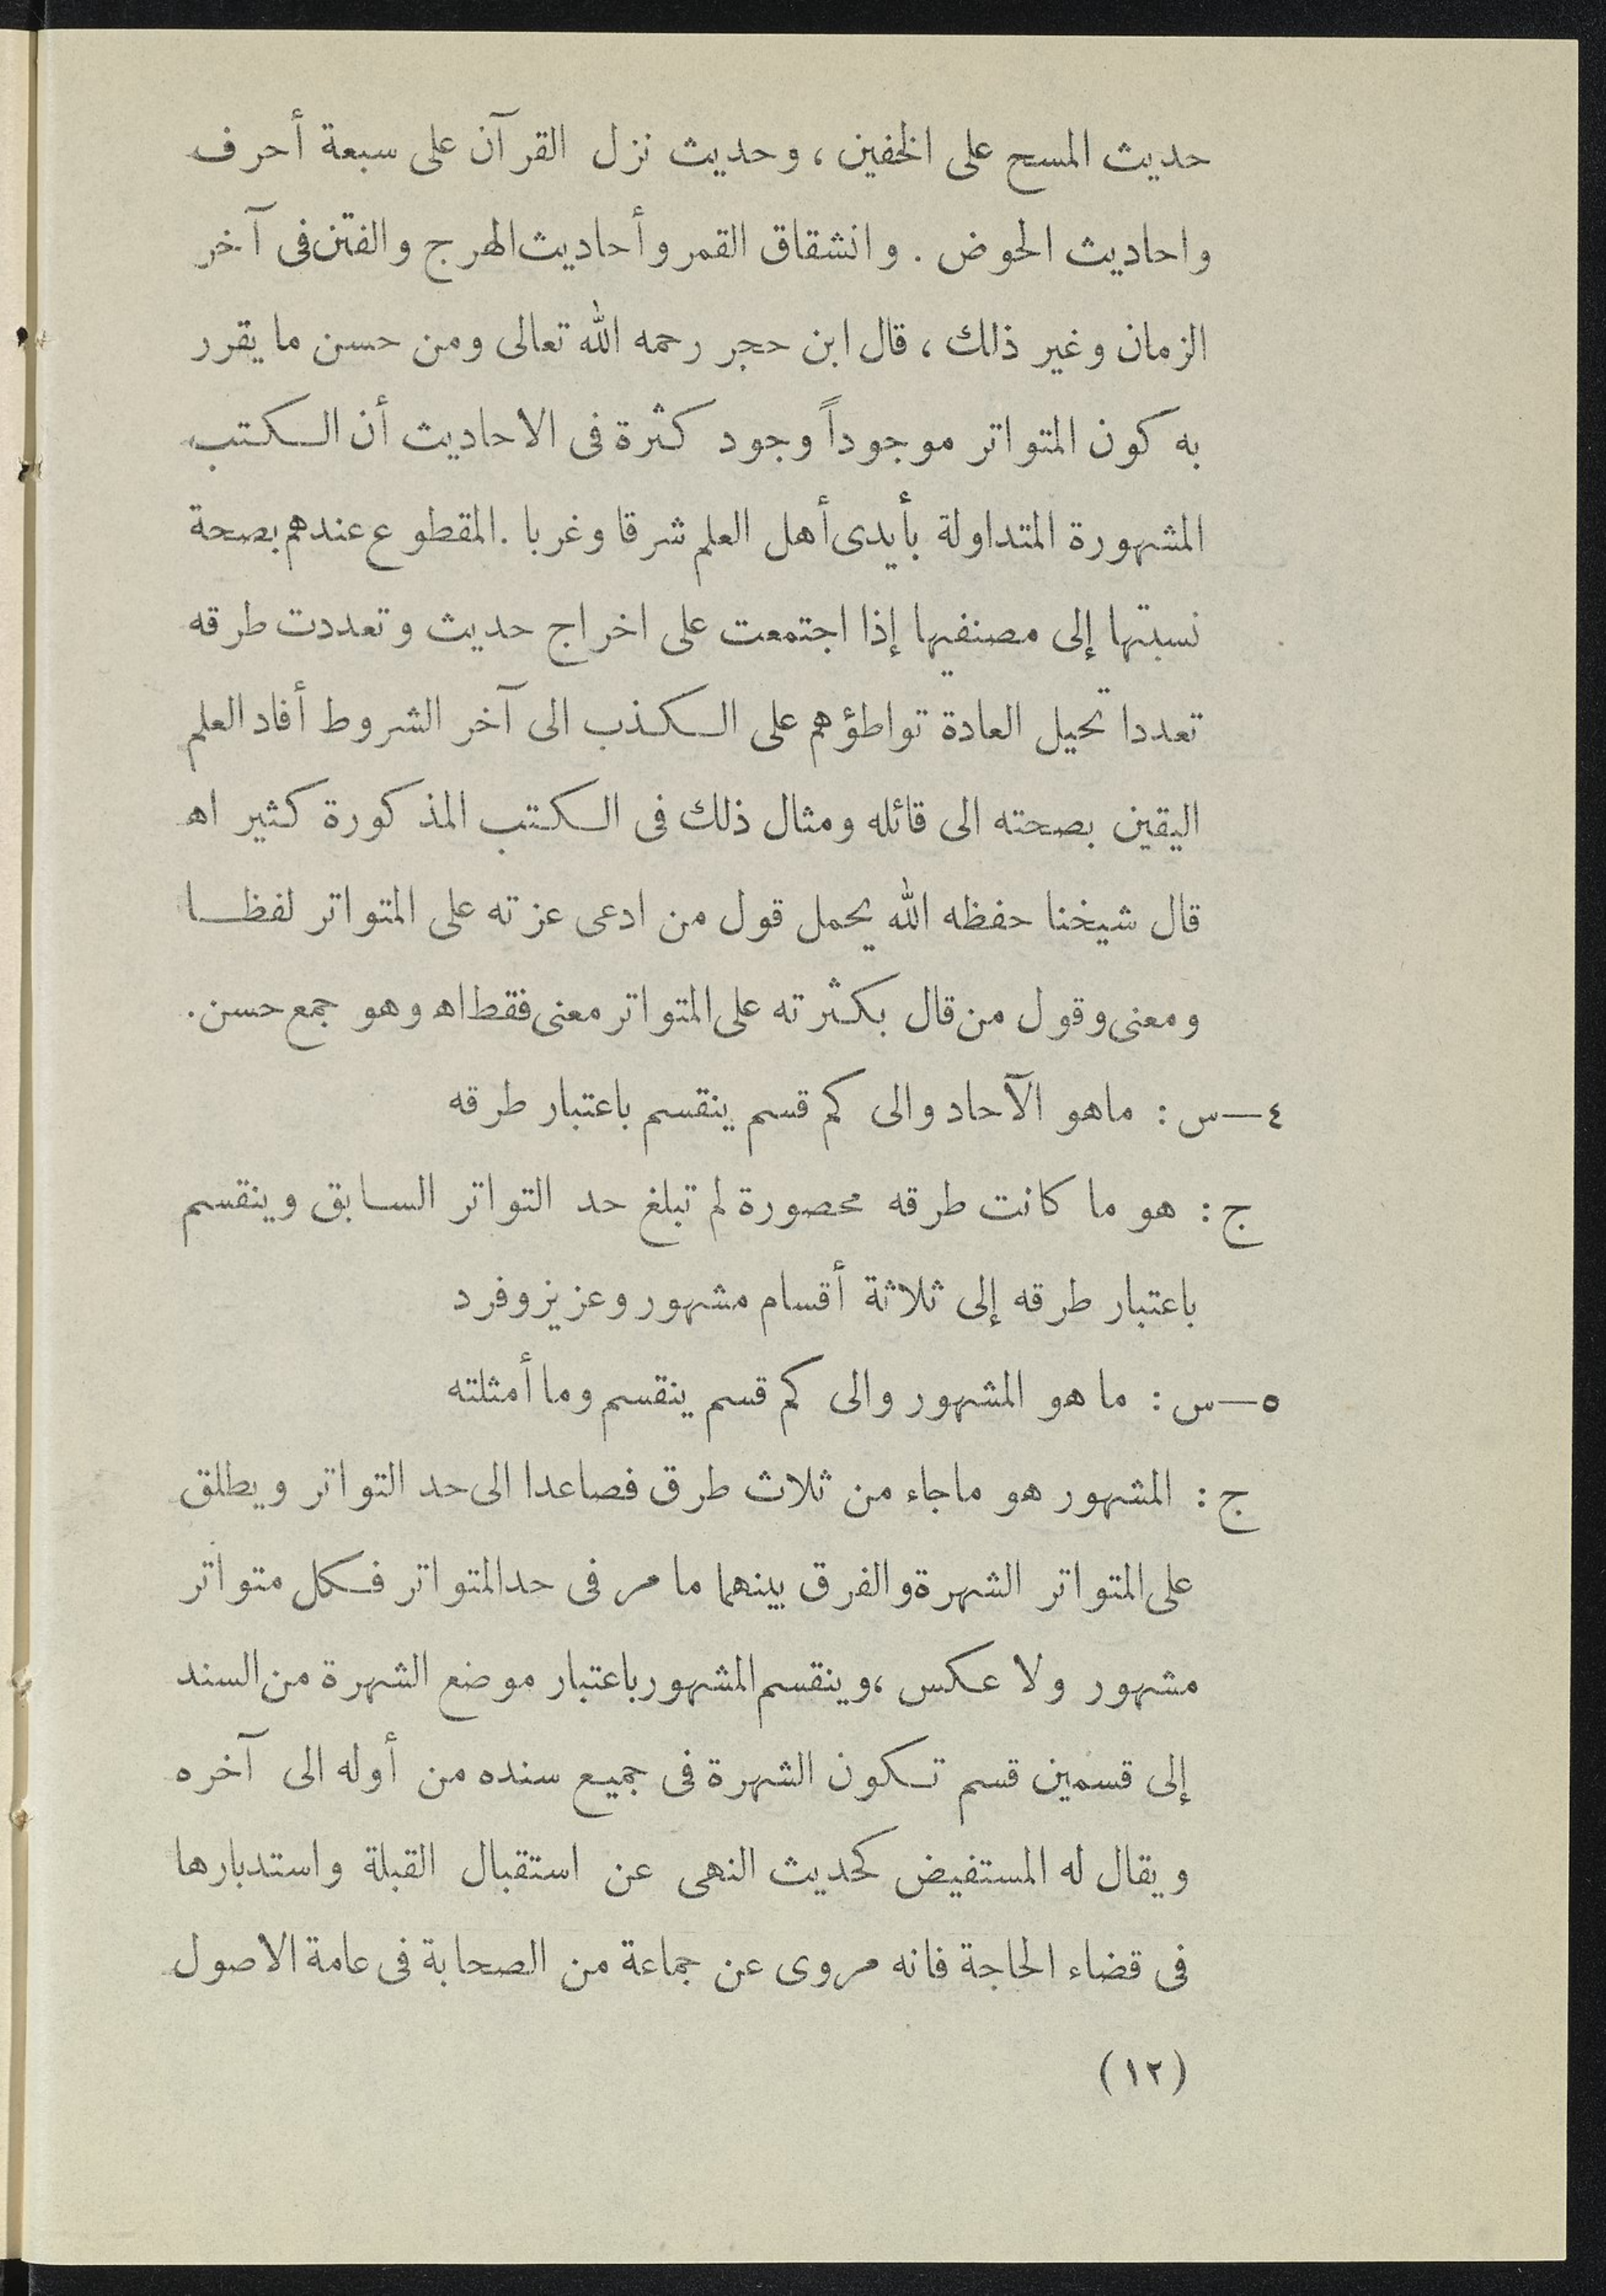 حديث المسح على الخفين ، وحديث نزل القرآن على سبعة أحرف
واحاديث الحوض . وانشقاق القمر وأحاديث الهرج والفتن فى آخر
الزمان وغير ذلك ، قال ابن حجر رحمه الله تعالى ومن حسن ما يقرر
به كون المتواتر موجوداً وجود كثرة فى الاحاديث أن الكتب
المشهورة المتداولة بأيدى أهل العلم شرقا وغربا . المقطوع عندهم بصحة
نسبتها إلى مصنفيها إذا اجتمعت على اخراج حديث وتعددت طرقه
تعددا تحيل العادة تواطؤهم على الكذب الى آخر الشروط أفاد العلم
اليقين بصحته الى قائله ومثال ذلك فى الكتب المذكورة كثير اه
قال شيخنا حفظه الله يحمل قول من ادعى عزته على المتواتر لفظا
ومعنى وقول من قال بكثرته على المتواتر معنى فقط اه وهو جمع حسن .
٤—س : ماهو الآحاد والى كم قسم ينقسم باعتبار طرقه
ج : هو ما كانت طرقه محصورة لم تبلغ حد التواتر السابق وينقسم
باعتبار طرقه إلى ثلاثة أقسام مشهور وعزيز وفرد
٥—س : ما هو المشهور والى كم قسم ينقسم وما أمثلته
ج : المشهور هو ماجاء من ثلاث طرق فصاعدا الى حد التواتر ويطلق
على المتواتر الشهرة والفرق بينهما ما مر فى حد المتواتر فكل متواتر
مشهور ولا عكس ، وينقسم المشهور باعتبار موضع الشهرة من السند
إلى قسمين قسم تكون الشهرة فى جميع سنده من أوله الى آخره
ويقال له المستفيض كحديث النهى عن استقبال القبلة واستدبارها
فى قضاء الحاجة فانه مروى عن جماعة من الصحابة فى عامة الاصول
(١٢)